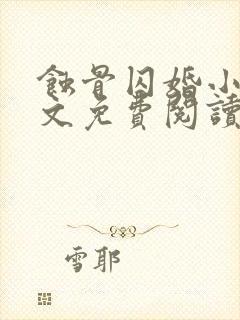 蝕骨囚婚小
文免費閱讀
雪耶